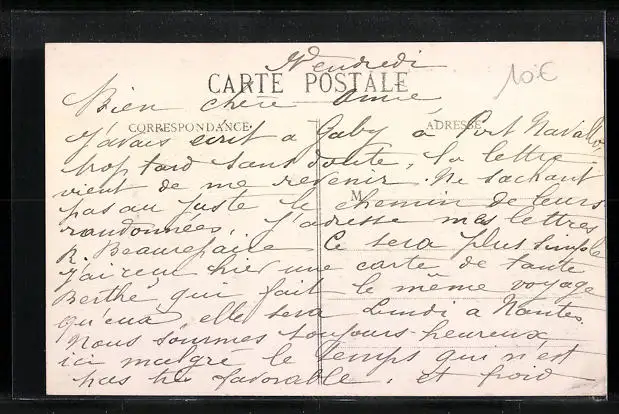 Vendredi
10€
CARTE POSTALE
Bien chère amie
CORRESPONDANCE
ADRESSE
J'avais écrit a Gaby à Port Navallo
trop tard sans doute, la lettre
vient de me revenir. Ne sachant
M
pas au juste le chemin de leurs
randonnées, j'adresse mes lettres
R. Beaurepaire Ce sera plus simple
J'ai reçu hier une carte de tante
Berthe qui fait le même voyage
qu'eux, elle sera Lundi a Nantes.
Nous sommes toujours heureux
ici malgre le temps qui n'est
pas très favorable, et froid